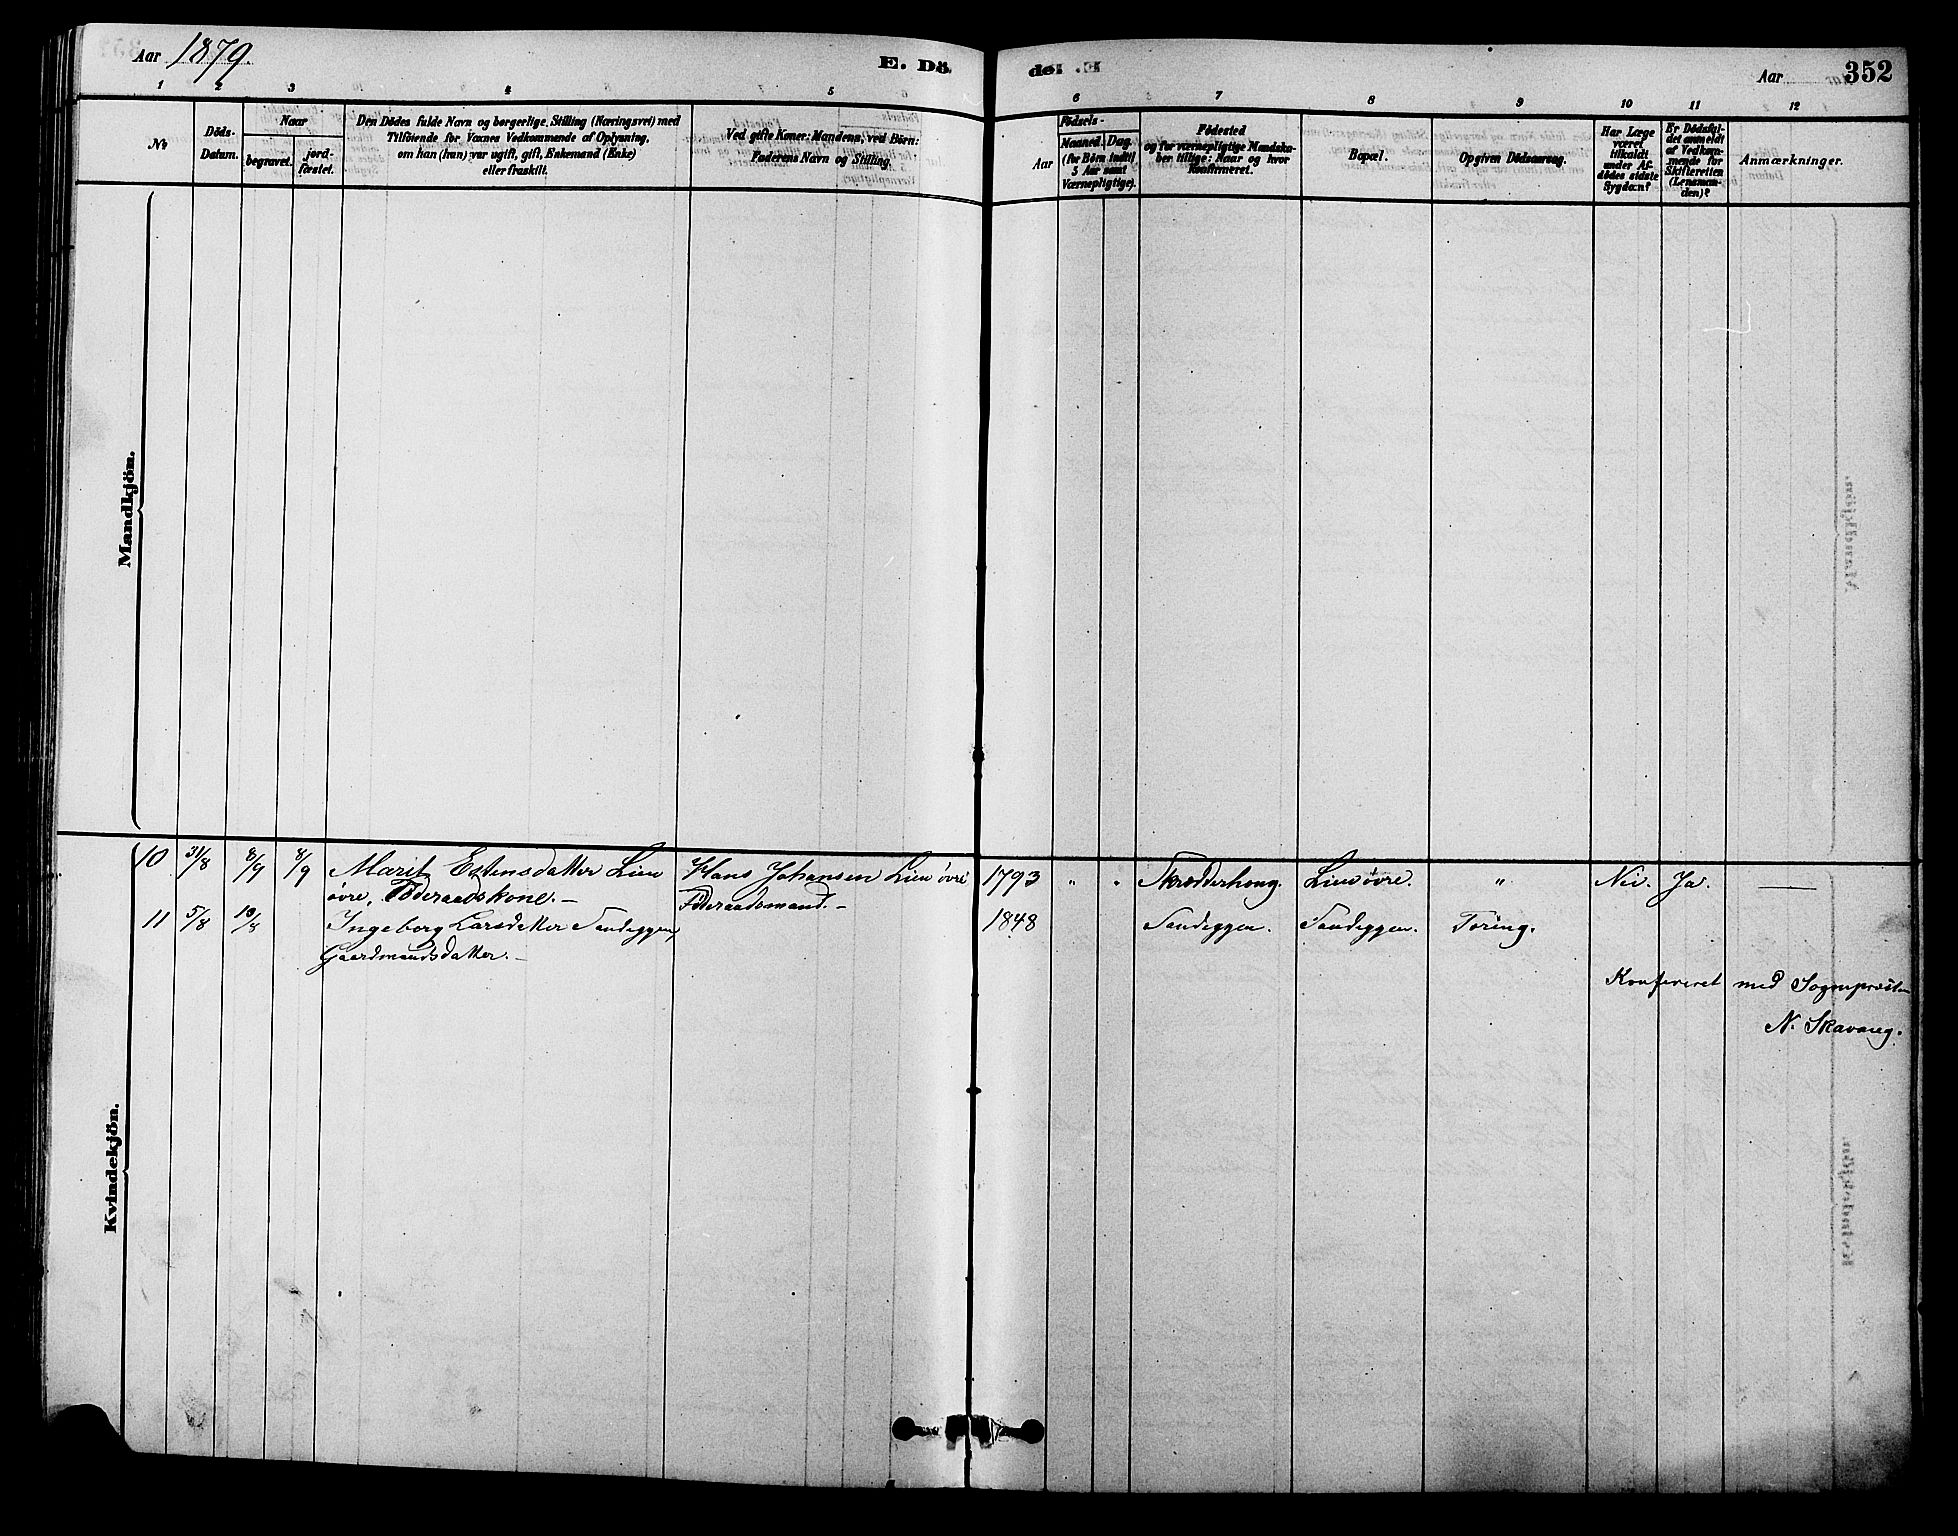 Aar 1879.
E. Dö
de.
Aar
352
1 2 3 4 5 6 7 8 9 10 11 12
No
Döds-
Datum.
Naar
begravet.
jord-
fæstet.
Den Dödes fulde Navn og borgerlige Stilling (Næringsvei) med
Tilföiende for Voxnes Vedkommende af Oplysning,
om han (hun) var ugift, gift, Enkemand (Enke)
eller fraskilt.
Ved gifte Koner: Mandens, ved Börn:
Faderens Navn og Stilling.
Födsels-
Aar
Maaned. Dag.
(for Börn indtil
5 Aar samt
Værnepligtige).
Födested
og for værnepligtige Mandska-
ber tillige: Naar og hvor
konfirmeret.
Bopæl.
Opgiven Dödsaarsag.
Har Læge
været
tilkaldt
under Af-
dödes sidste
Sygdom?
Er Dödsfal-
det anmeldt
af Vedkom-
mende for
Skifteretten
(Lensman-
den)?
Anmærkninger.
Mandkjön.
Kvindekjön.
10 31/8 8/9 8/9 Marit Estensdatter Lien Hans Johansen Lien øvre 1793 " " Skrædderhaug. Lien øvre. " Nei. Ja. —
øvre, Föderaadskone. — Föderaadsmand. —
11 5/8 10/8 Ingeborg Larsdatter Sandeggen, 1848 Sandeggen. Sandeggen. Tæring.
Gaardmandsdatter. —
Konfereret med Sognepræsten
N. Skavang.